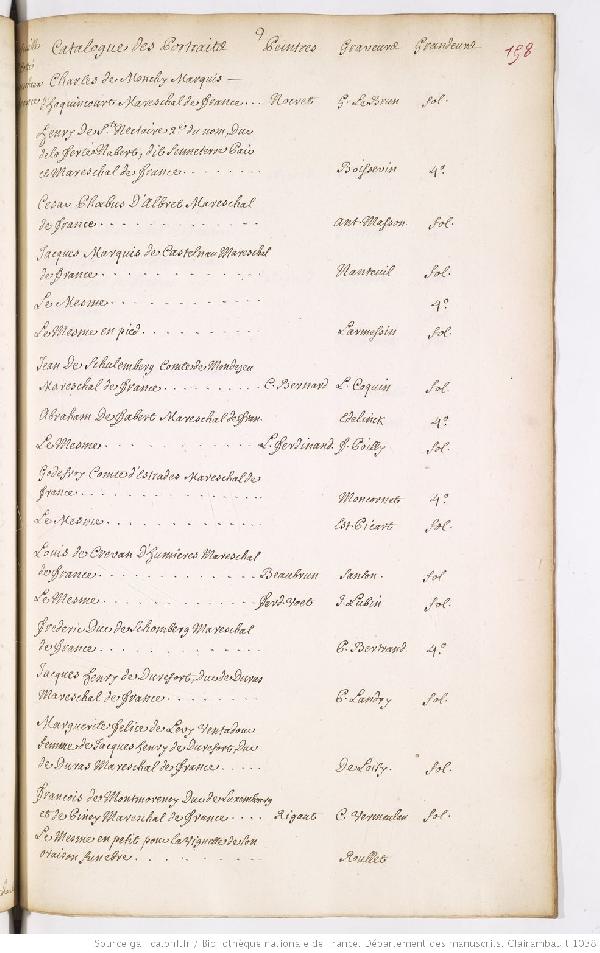 Catalogue des Portraits Peintres Graveurs Grandeurs 198
Charles de Monchy Marquis
d'hoquincourt Mareschal de france... Nocret G. Le Brun fol.
henry de St. Nectaire 2e du nom, Duc
de la ferté Nabert, dit Senneterre Pair
et Mareschal de france....... Boissevin 4°.
Cesar Phœbus D'Albret Mareschal
de france............ Ant. Masson. fol.
Jacques Marquis de Castelnau Mareschal
de france............ Nanteuil fol.
Le Mesme........... 4°
Le Mesme en pied......... Larmessin fol.
Jean De Schulemberg Comte de Mondejeu
Mareschal de france........ C. Bernard L. Coquin fol.
Abraham De fabert Mareschal de fran. Edelinck 4°.
Le Mesme............ L. ferdinand. f. Poilly fol.
Godefroy Comte d'Estrades Mareschal de
france............ Moncornet 4°.
Le Mesme............ Est. Picart fol.
Louis de Crevan D'humieres Mareschal
de france............ Beaubrun Santon. fol
Le Mesme............ ferd. Voet J. Lubin fol.
frederic Duc de Schomberg Mareschal
de france............ P. Bertrand 4°.
Jacques henry de Durefort, duc de Duras
Mareschal de france....... P. Landry fol.
Marguerite felice de Levy Ventadour
femme de Jacques henry de Durefort, Duc
de Duras Mareschal de france.... De Loisy. fol.
francois de Montmorency Duc de Luxembourg
et de Piney Mareschal de france.... Rigaut C. Vermeulen fol.
Le Mesme en petit pour la Vignette de son
oraison funebre.......... Roullet
Source gallica.bnf.fr / Bibliothèque nationale de France. Département des manuscrits. Clairambault 1038